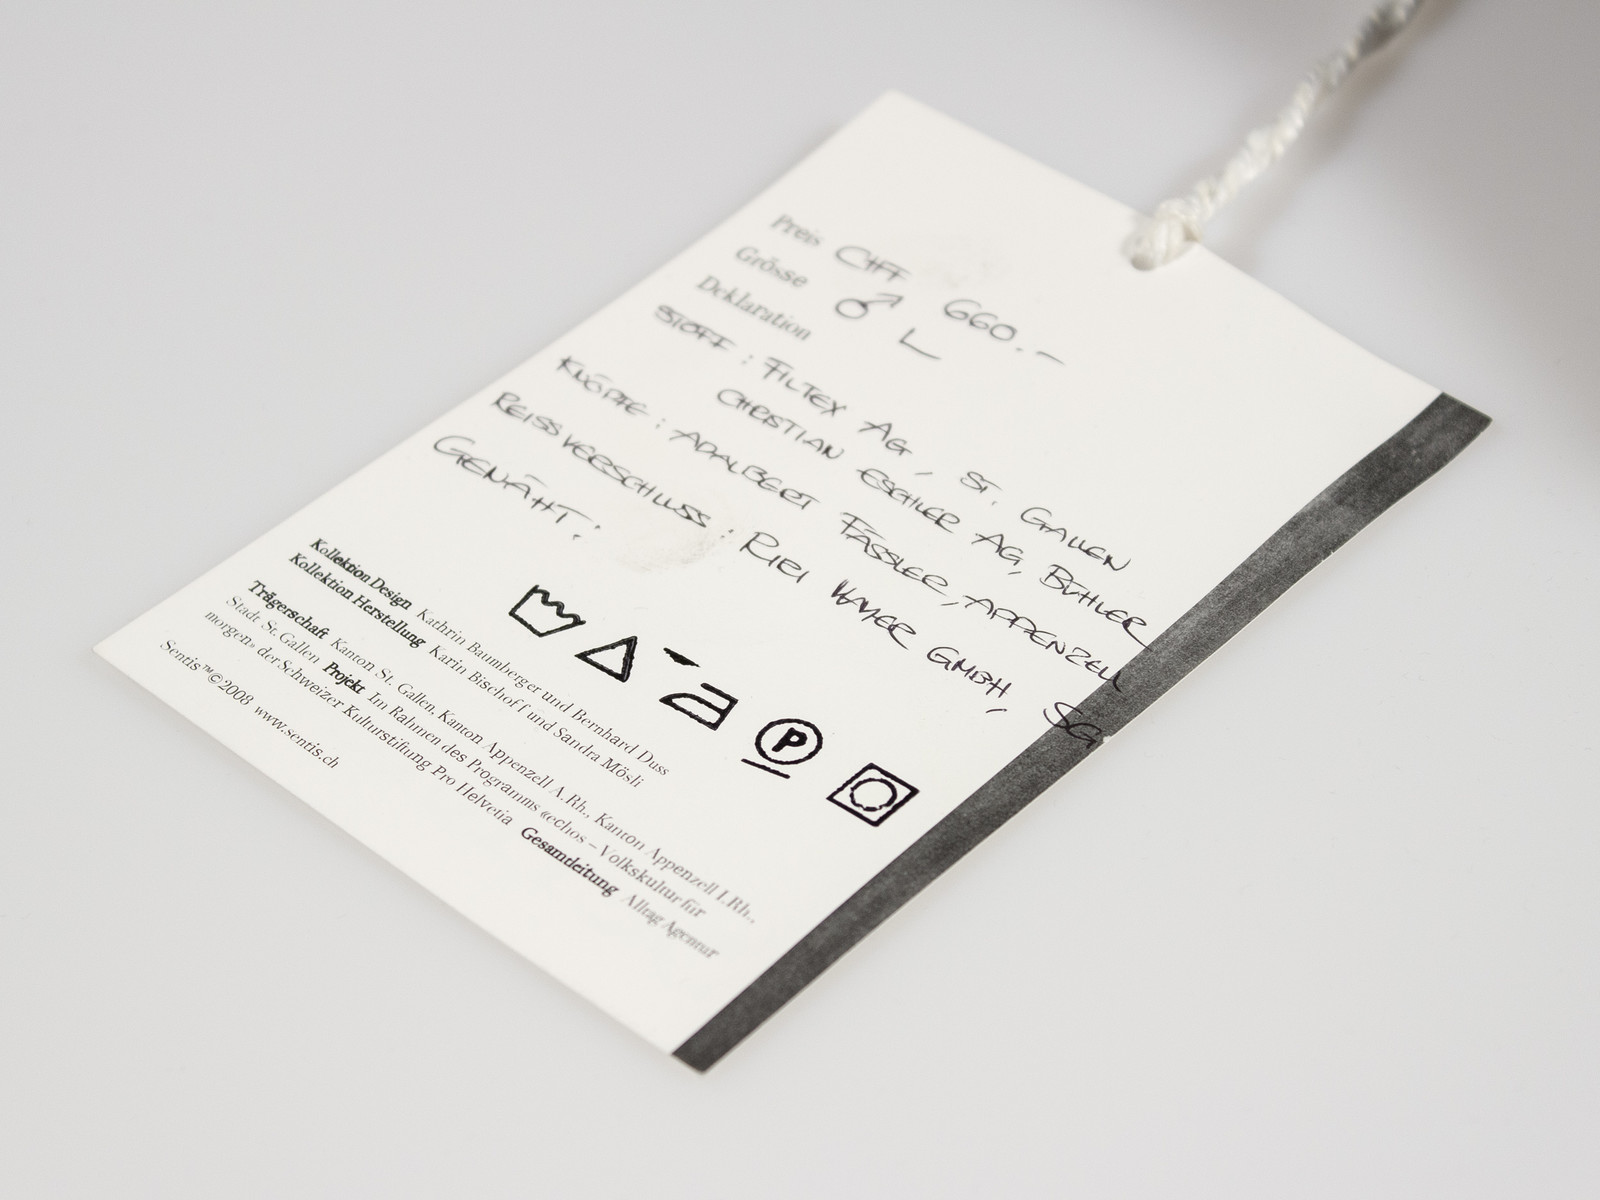 Preis CHF 660.–
Grösse ♂ L
Deklaration
STOFF : FILTEX AG, ST. GALLEN
CHRISTIAN ESCHLER AG, BÜHLER
KNÖPFE : ADALBERT FÄSSLER, APPENZELL
REISSVERSCHLUSS : RIRI GMBH, SG
GENÄHT :
P
Kollektion Design Kathrin Baumberger und Bernhard Duss
Kollektion Herstellung Karin Bischof und Sandra Mösli
Trägerschaft Kanton St. Gallen, Kanton Appenzell A.Rh., Kanton Appenzell I.Rh.,
Stadt St. Gallen Projekt Im Rahmen des Programms «echos – Volkskultur für
morgen» der Schweizer Kulturstiftung Pro Helvetia Gesamtleitung Alltag Agentur
Sentis™©2008 www.sentis.ch